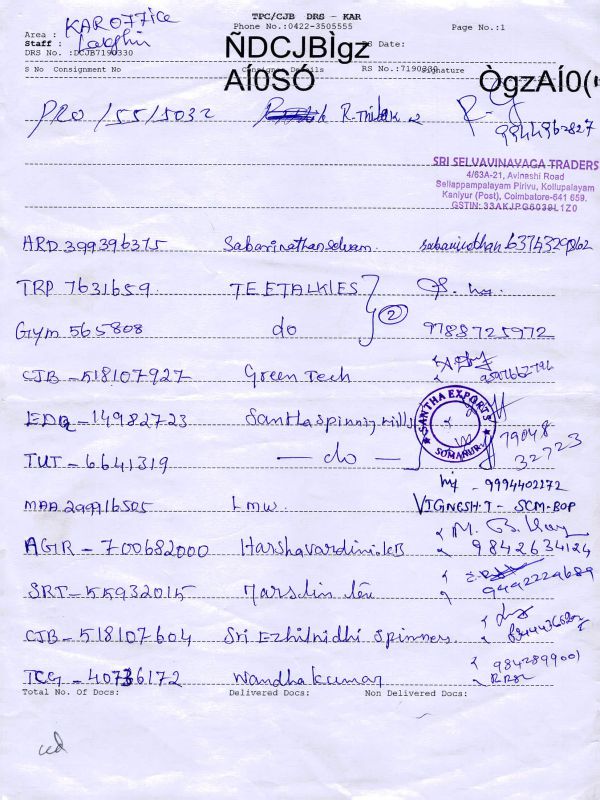 TPC/CJB DRS - KAR
KAR Office
Phone No.:0422-3505555 Page No.:1
Area :
Staff :
DRS No. :DCJB7190330 RS Date:
ÑDCJBÌgz
S No Consignment No Consignee Details RS No.:7190330 Signature
AÍ0SÓ ÒgzAÍ0(
PRO/55/5032 R. Thilak 2
9944962827
SRI SELVAVINAYAGA TRADERS
4/63A-21, Avinashi Road
Sellappampalayam Pirivu, Kollupalayam
Kaniyur (Post), Coimbatore-641 659.
GSTIN: 33AKJPG6039L1Z0
ARD 399396375 Sabarinathan selvam. sabarinathan 6374329862
TRP 7631659. TEETALKIES
Gym 565808 do 2 9788725972
CJB-518107927 Green Tech
EDQ-14982723 Santha spinning mills
SANTHA EXPORTS
SOMANUR
79048
32723
TUT-6641319 — do —
9994402172
MAA 299916505 LMW. VIGNESH.T - SCM-BOP
AGR-700682000 Harshavardini.KB 9842634124
SRT-55932015 Marslin 9492229689
CJB-518107604 Sri Ezhilnidhi Spinners.
TCG-40736172 Nandhakumar 9842899001
Total No. Of Docs: Delivered Docs: Non Delivered Docs: